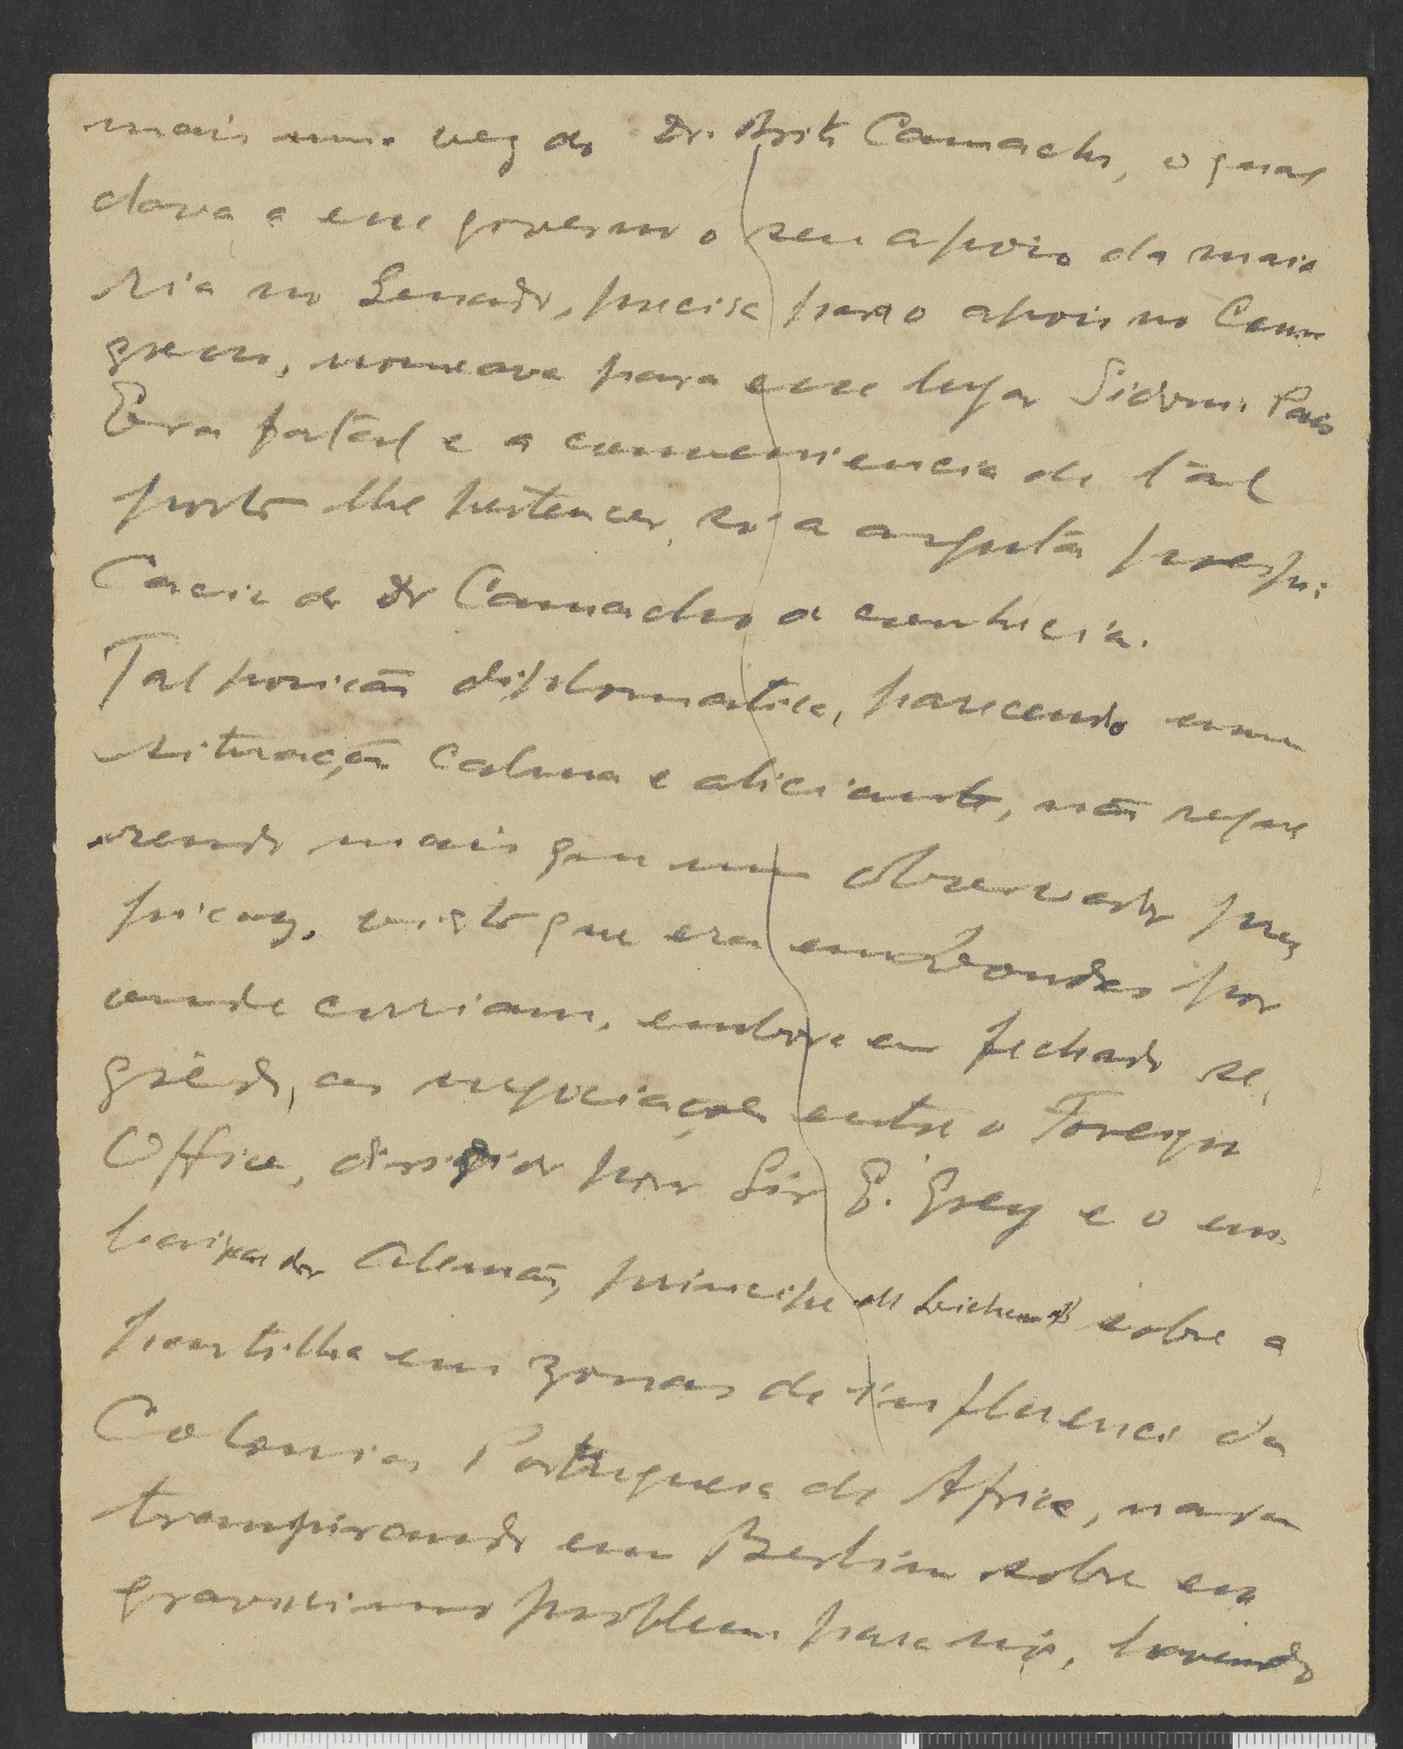 mais uma vez do Dr. Brito Camacho, o qual
dava a esse governo o seu apoio da maio
ria no Senado, precisa para o apoio no Con
gresso, nomeava para esse lugar Sidonio Paes
Era fatal e a conveniencia de tal
posto lhe pertencer, só a arguta prespi
cacia do Dr Camacho a conhecia.
Tal posição diplomatica, parecendo uma
situação calma e aliciante, não reque
rendo mais que um observador pres
picaz, visto que era em Londres por
onde corriam, embora em fechado se
grêdo, as negociações entre o Foreign
Office, dirigido por Sir E. Grey e o em
baixador Alemão, principe de Lichenowsky sobre a
partilha em zonas de influencia da
Colonias Portuguesa de Africa, nada
transpirando em Berlim sobre esse
gravissimo problema para nós, havendo